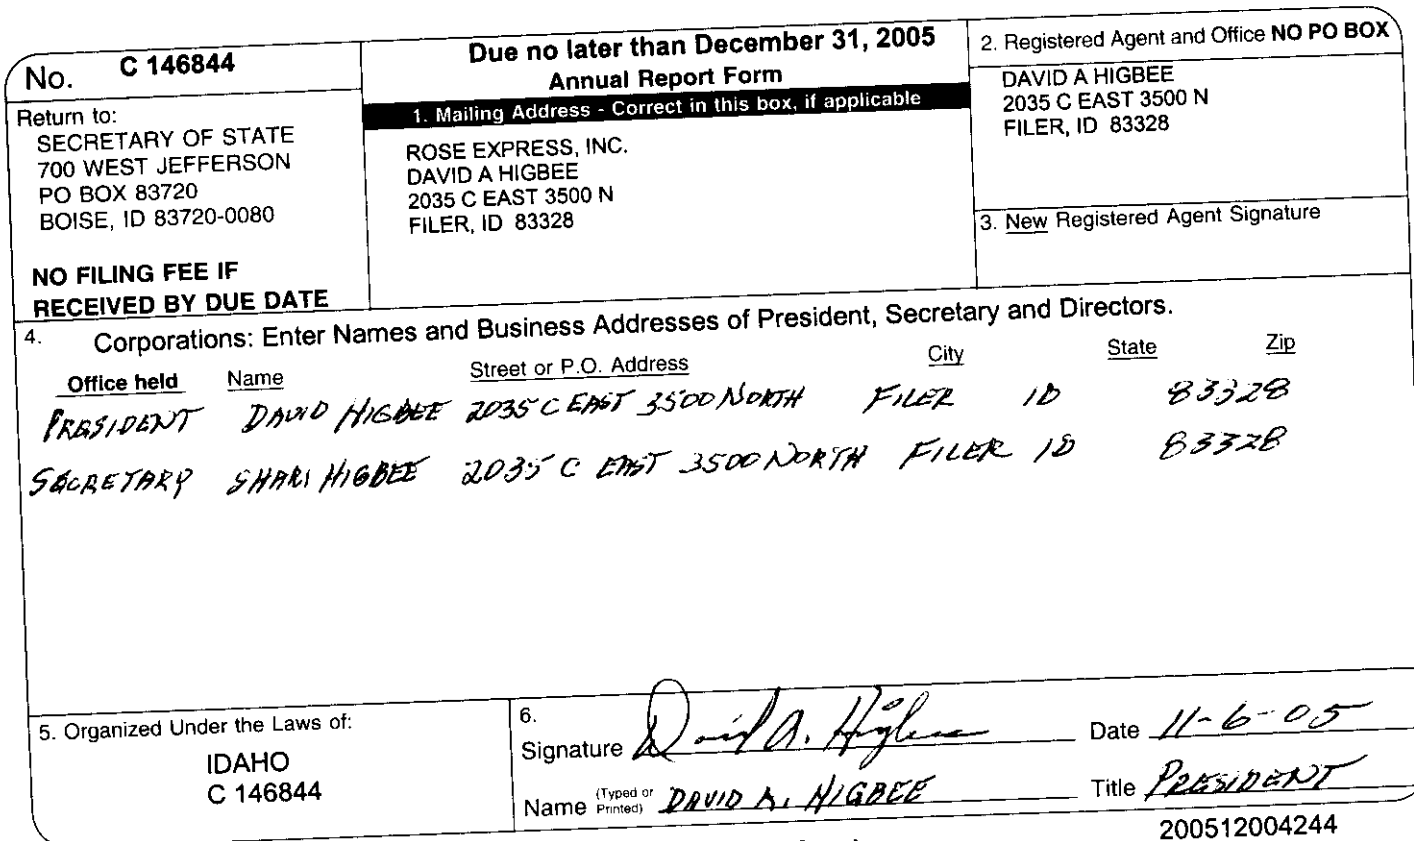 No. C 146844
Return to:
SECRETARY OF STATE
700 WEST JEFFERSON
PO BOX 83720
BOISE, ID 83720-0080
NO FILING FEE IF
RECEIVED BY DUE DATE
Due no later than December 31, 2005
Annual Report Form
1. Mailing Address - Correct in this box, if applicable
ROSE EXPRESS, INC.
DAVID A HIGBEE
2035 C EAST 3500 N
FILER, ID 83328
2. Registered Agent and Office NO PO BOX
DAVID A HIGBEE
2035 C EAST 3500 N
FILER, ID 83328
3. New Registered Agent Signature
4. Corporations: Enter Names and Business Addresses of President, Secretary and Directors.
Office held Name Street or P.O. Address City State Zip
PRESIDENT DAVID HIGBEE 2035 C EAST 3500 NORTH FILER ID 83328
SECRETARY SHARI HIGBEE 2035 C EAST 3500 NORTH FILER ID 83328
5. Organized Under the Laws of:
IDAHO
C 146844
6.
Signature David A. Higbee Date 11-6-05
Name (Typed or Printed) DAVID A. HIGBEE Title PRESIDENT
200512004244